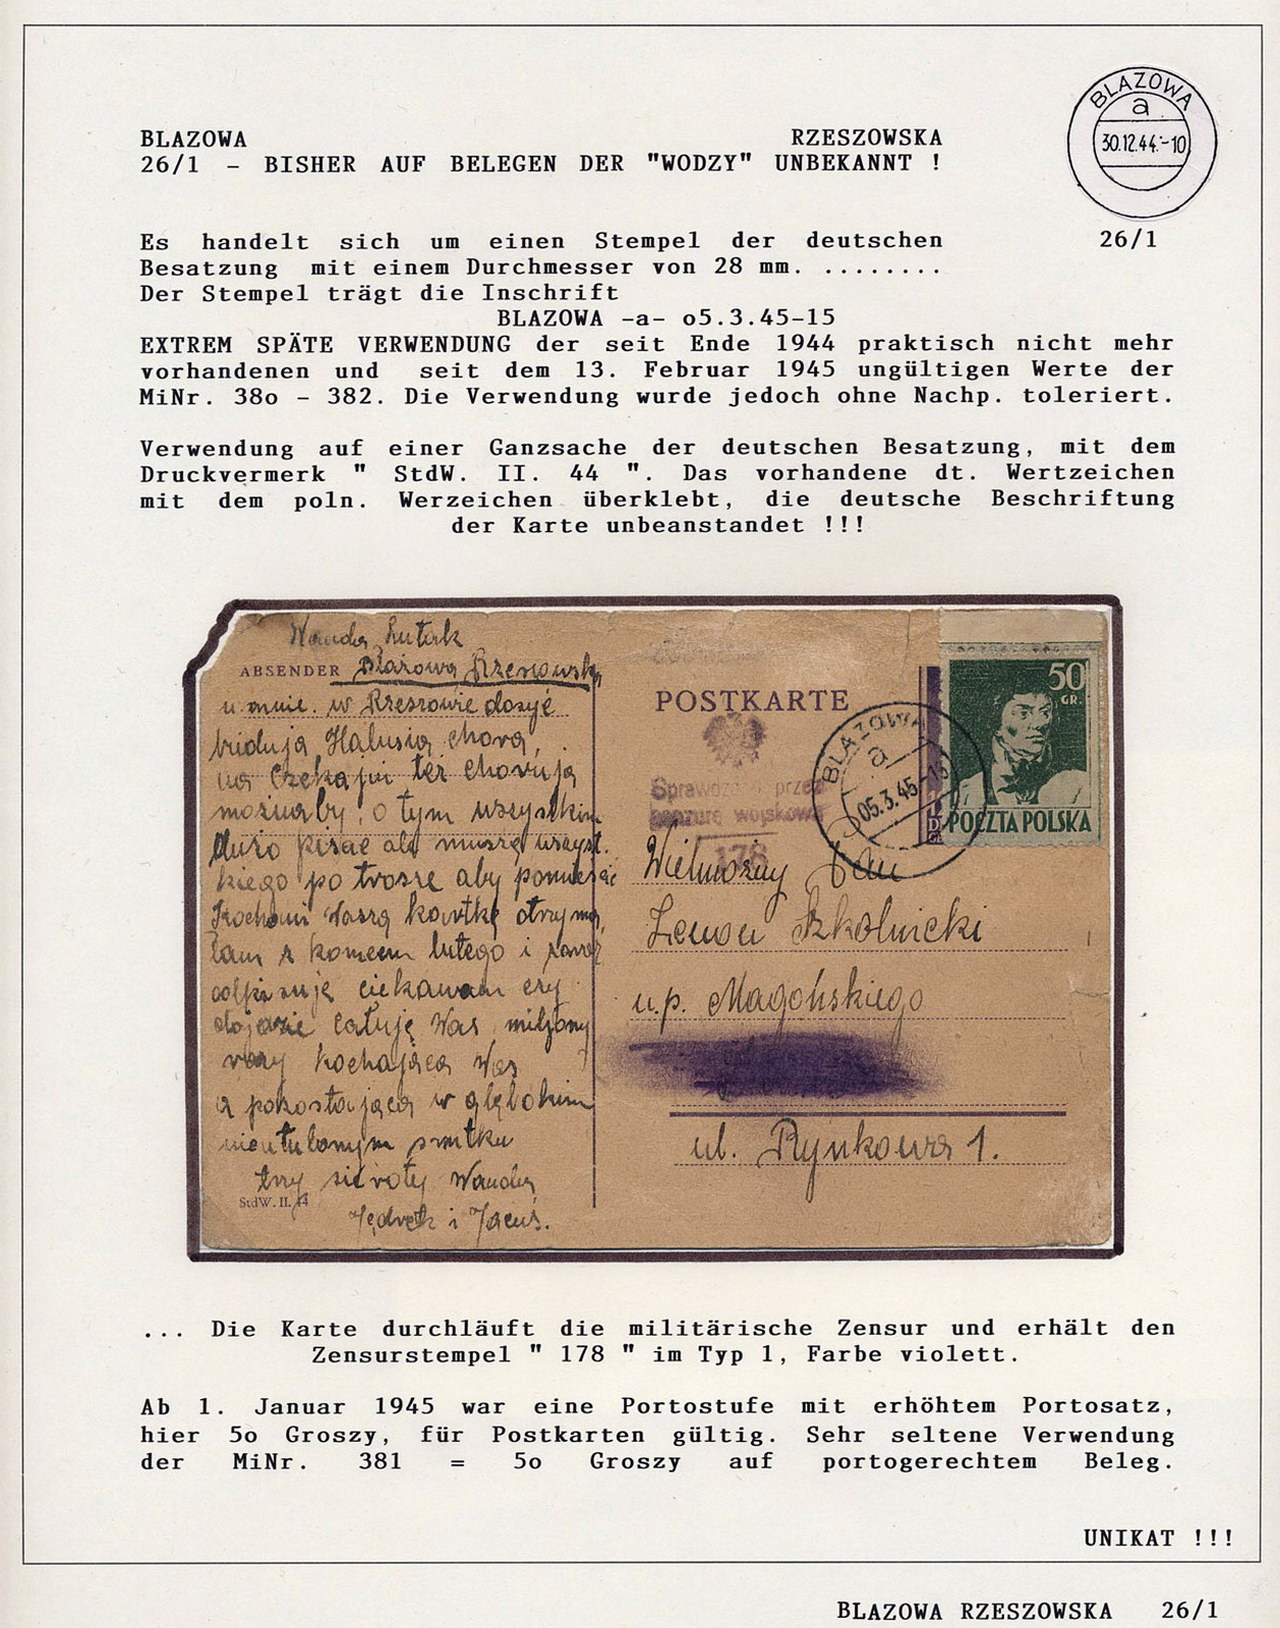 BLAZOWA
a
30.12.44.-10
26/1
BLAZOWA RZESZOWSKA
26/1 - BISHER AUF BELEGEN DER "WODZY" UNBEKANNT !
Es handelt sich um einen Stempel der deutschen
Besatzung mit einem Durchmesser von 28 mm. ........
Der Stempel trägt die Inschrift
BLAZOWA -a- o5.3.45-15
EXTREM SPÄTE VERWENDUNG der seit Ende 1944 praktisch nicht mehr
vorhandenen und seit dem 13. Februar 1945 ungültigen Werte der
MiNr. 38o - 382. Die Verwendung wurde jedoch ohne Nachp. toleriert.
Verwendung auf einer Ganzsache der deutschen Besatzung, mit dem
Druckvermerk " StdW. II. 44 ". Das vorhandene dt. Wertzeichen
mit dem poln. Werzeichen überklebt, die deutsche Beschriftung
der Karte unbeanstandet !!!
Wanda
ABSENDER Błażowa
u mnie. w Rzeszowie dosyć
Halusia chora,
na też chorują
możnaby o tym wszystkim
dużo pisać ale muszę wszyst.
kiego po trosze aby pomieścić
kartkę otrzyma
łam z końcem lutego i zaraz
odpisuję ciekawam czy
dojdzie całuję Was miljony
razy kochająca Was
a pozostająca w głębokim
nieutulonym smutku
trzy sieroty Wanda,
i Jacuś.
StdW. II. 44
POSTKARTE
Sprawdzono przez
cenzurę wojskową
178
BLAZOWA
a
05.3.45-15
50
GR.
POCZTA POLSKA
Wielmożny Pan
Szkolnicki
u.p. Magońskiego
ul. Rynkowa 1.
... Die Karte durchläuft die militärische Zensur und erhält den
Zensurstempel " 178 " im Typ 1, Farbe violett.
Ab 1. Januar 1945 war eine Portostufe mit erhöhtem Portosatz,
hier 5o Groszy, für Postkarten gültig. Sehr seltene Verwendung
der MiNr. 381 = 5o Groszy auf portogerechtem Beleg.
UNIKAT !!!
BLAZOWA RZESZOWSKA 26/1